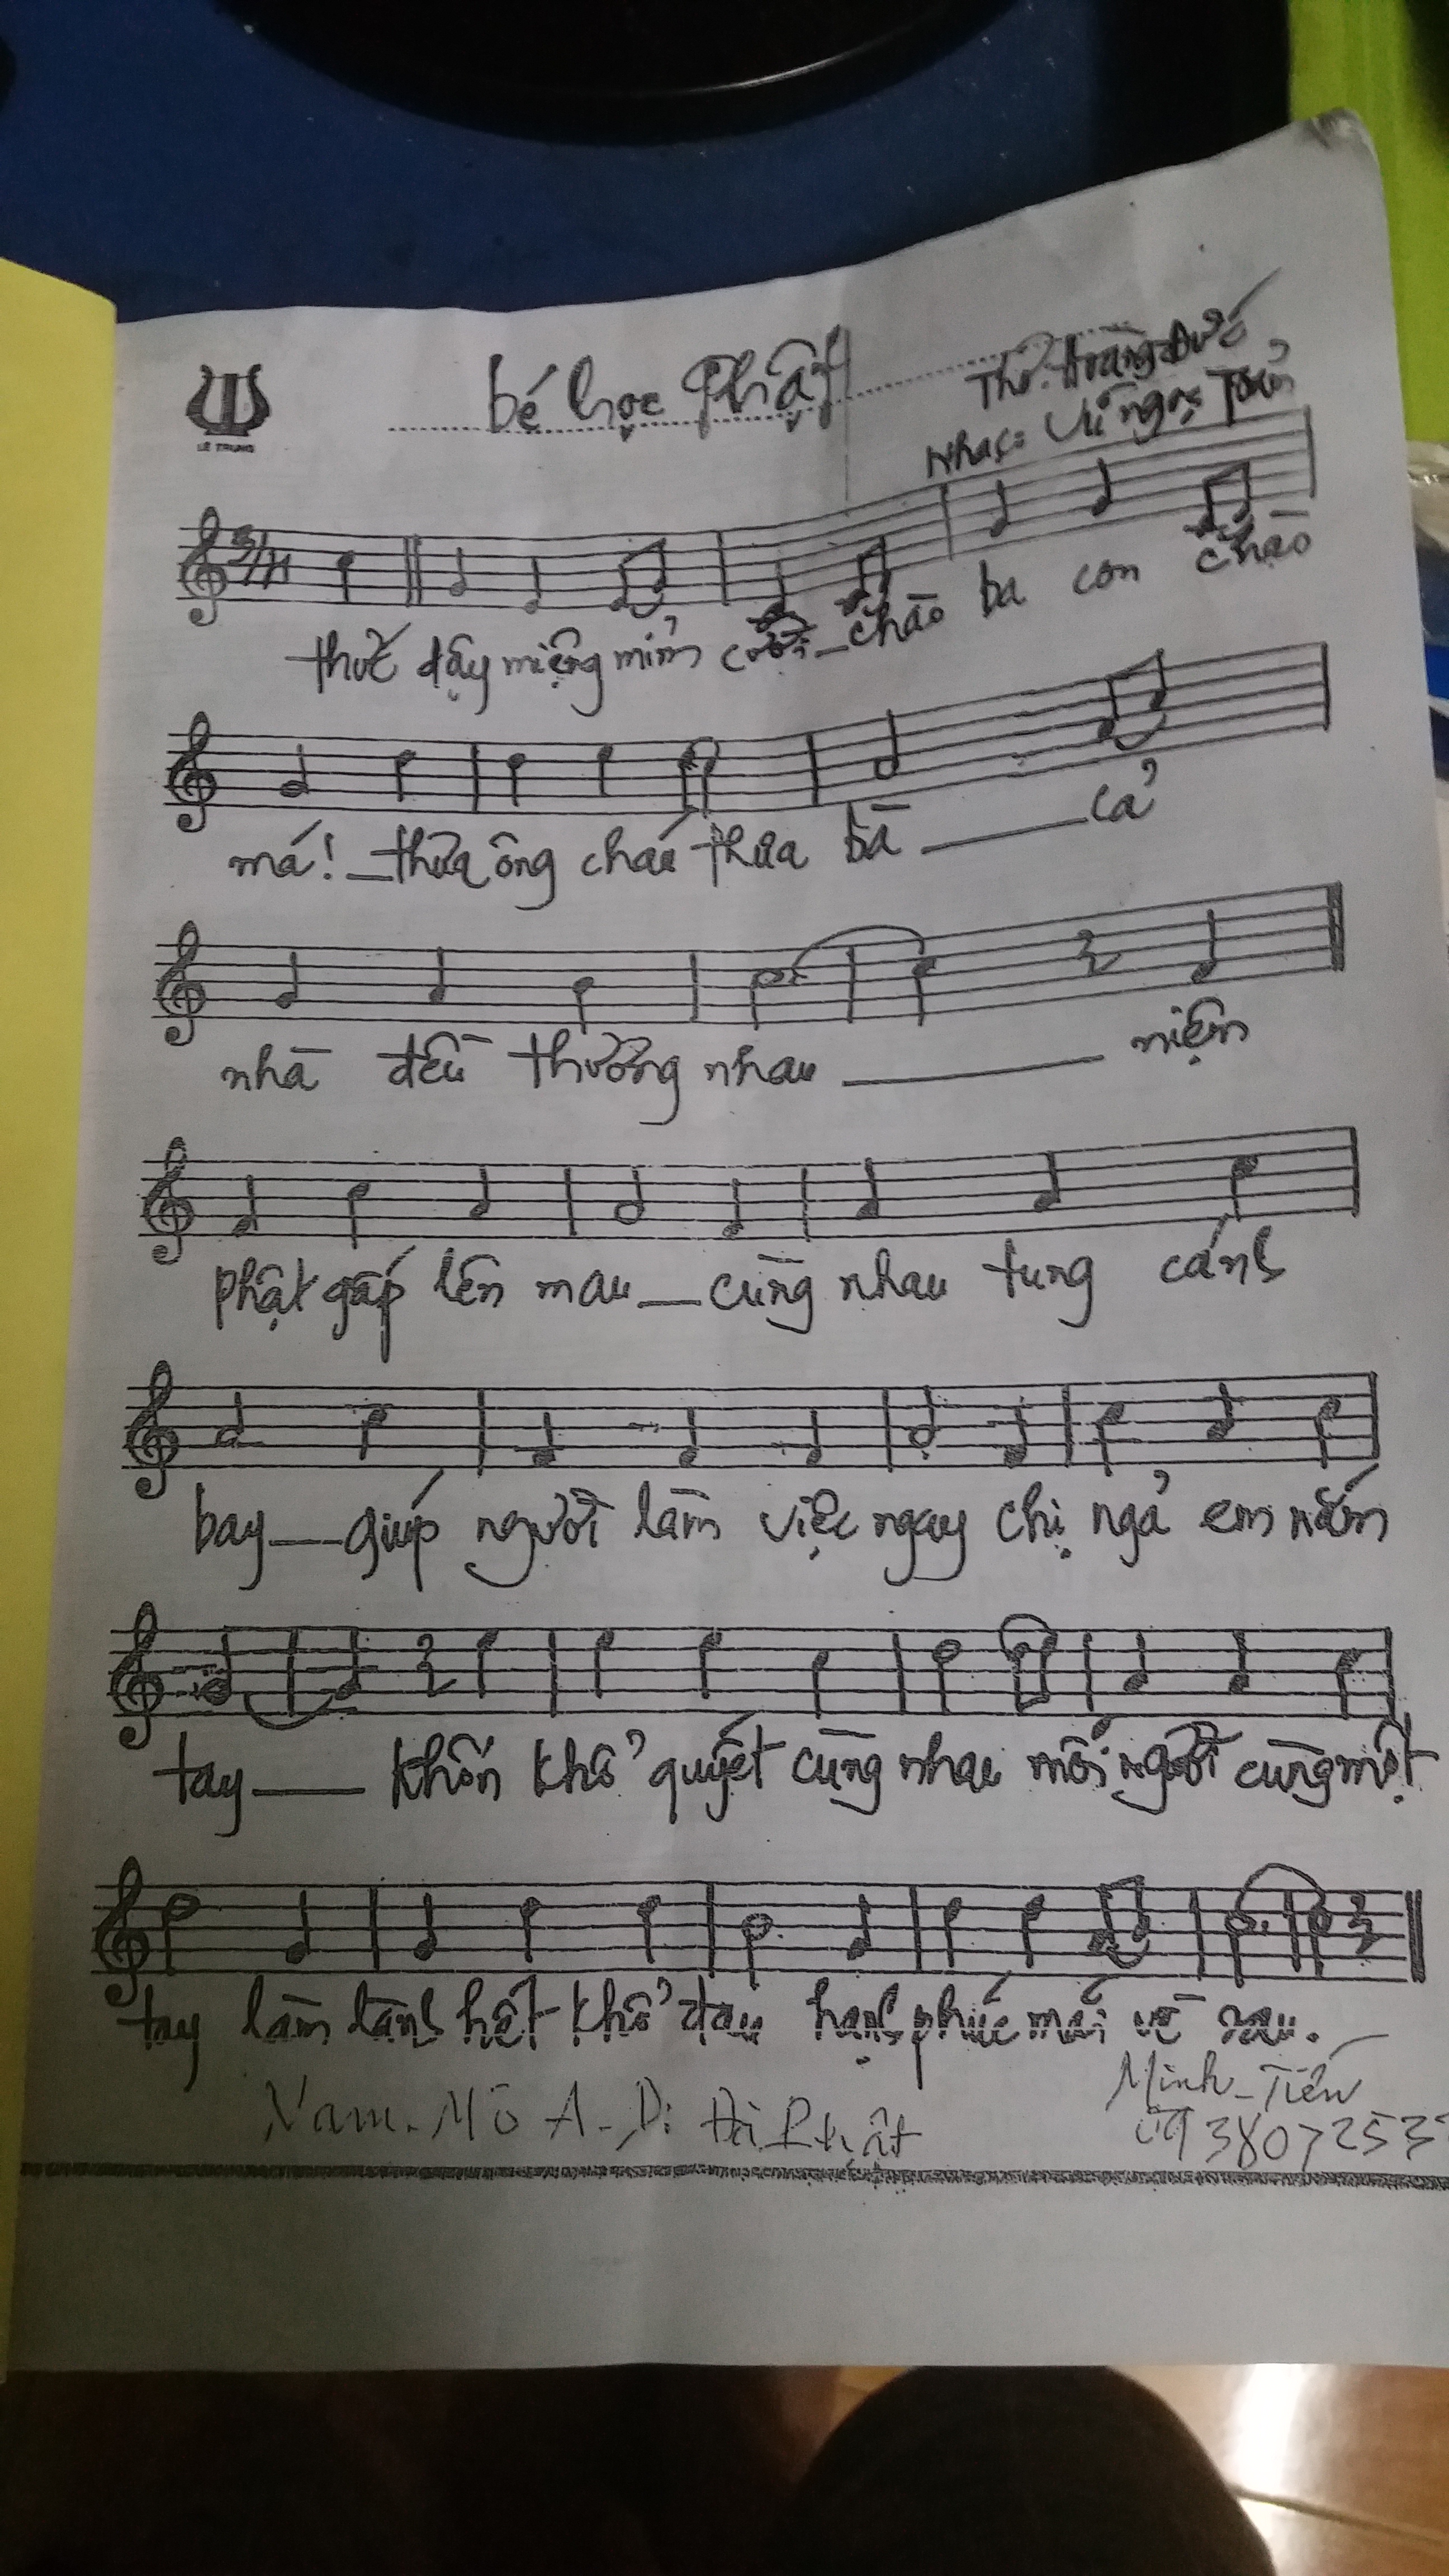 bé học Phật
Thơ: Hoàng Đức
Nhạc: Vũ Ngọc Toản
LÊ TRUNG
3/4
thức dậy miệng mỉm cười_chào ba con chào
má!_thưa ông cháu thưa bà ___cả
nhà đều thương nhau ___ niệm
phật gấp lên mau_cùng nhau tung cánh
bay_giúp người làm việc ngay chị ngả em nắm
tay__ khốn khổ quyết cùng nhau mỗi người cùng một
tay làm lành hết khổ đau hạnh phúc mãi về sau.
Nam-Mô A-Di Đà Phật
Minh-Tiến